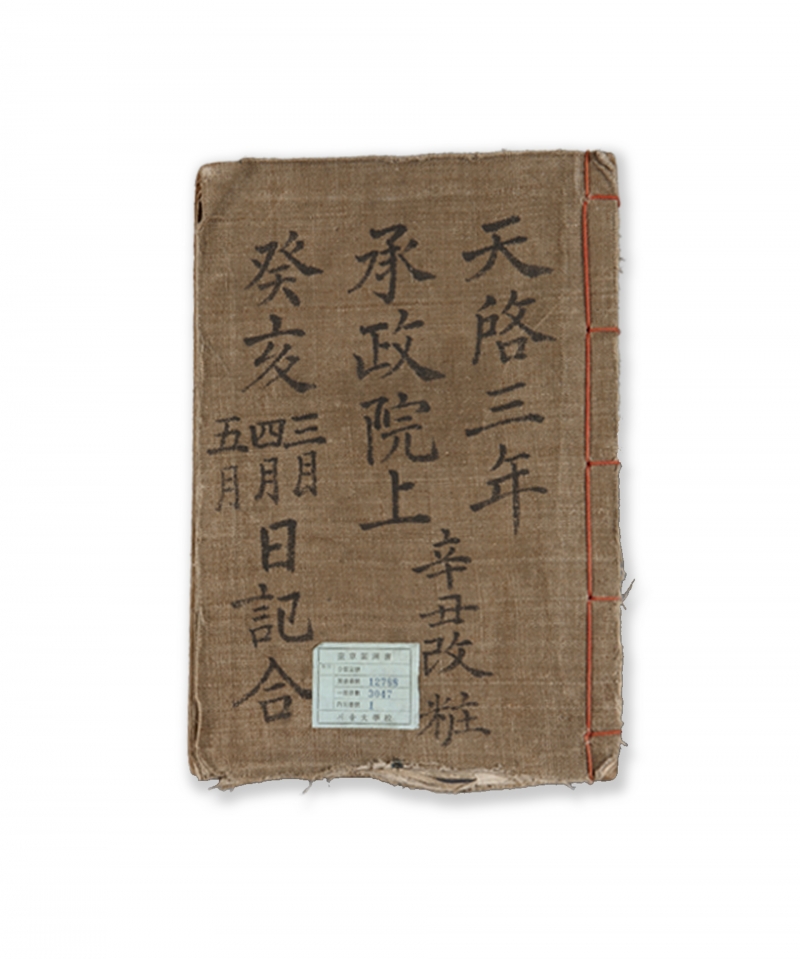 天啓三年
承政院上
辛丑改粧
癸亥
三月
四月
五月
日記合
12788
3047
1